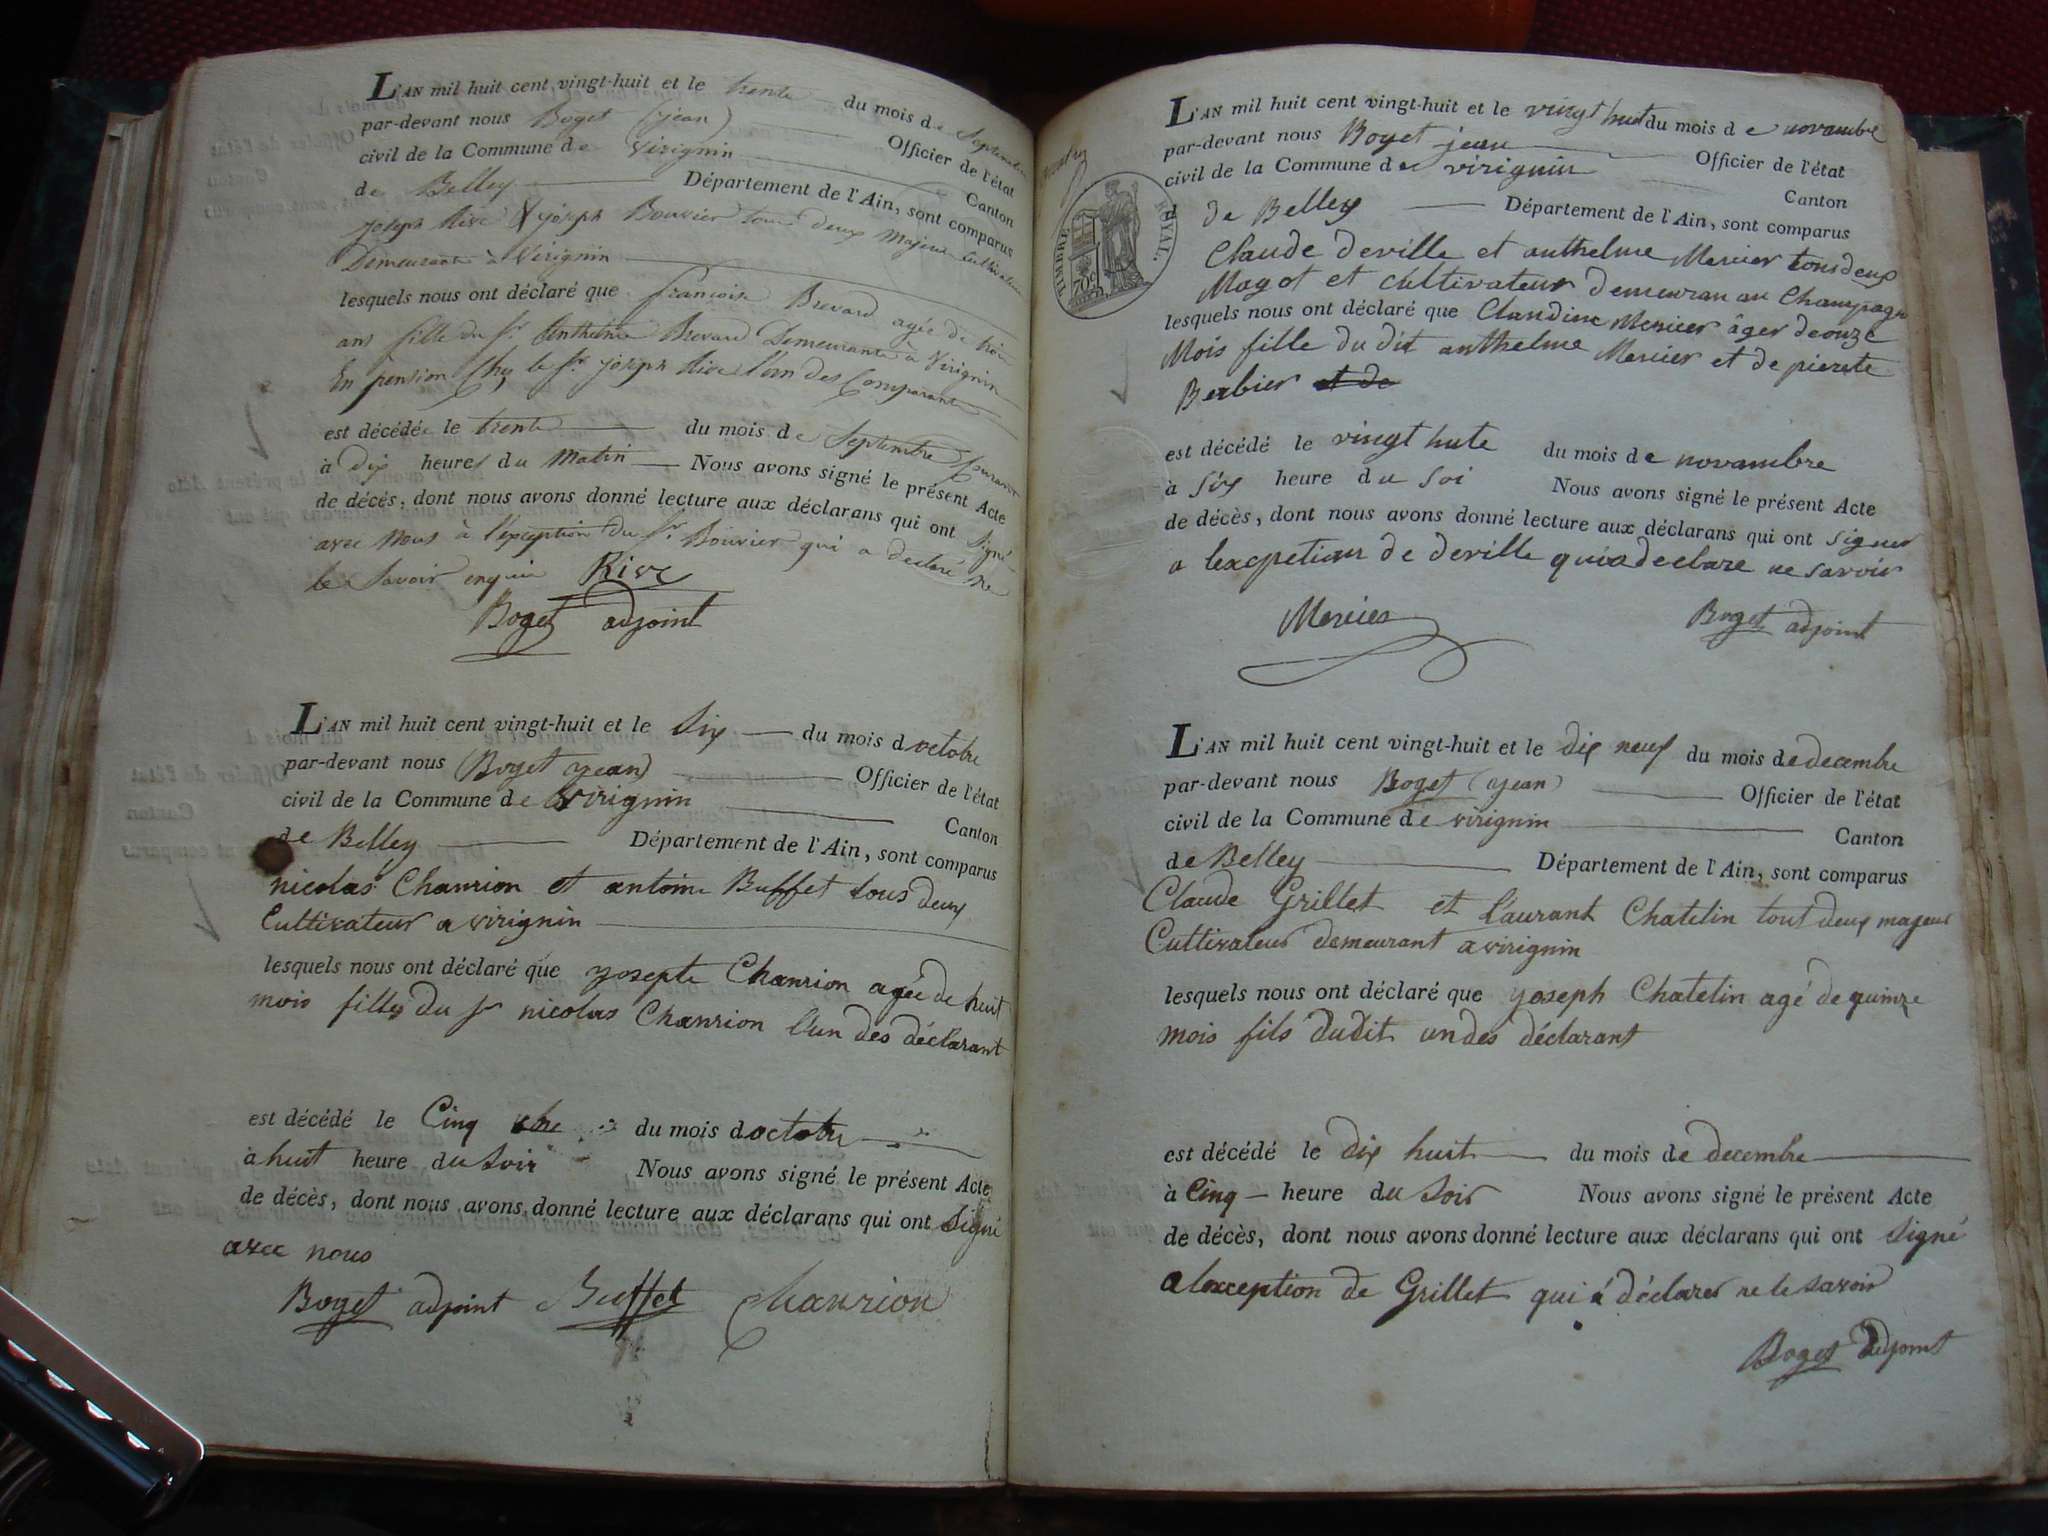 L'AN mil huit cent vingt-huit et le trente du mois de Septembre
par-devant nous Boget (jean) Officier de l'état
civil de la Commune de Virignin Canton
de Belley Département de l'Ain, sont comparus
joseph Rive & joseph Bouvier tous deux majeur Cultivateur
Demeurant à Virignin
lesquels nous ont déclaré que francoise Brevard agée de trois
ans fille du Sr. Anthelme Brevard Demeurante à Virignin
En pension Chez le Sr joseph Rive l'un des Comparants
est décédée le trente du mois de Septembre Courant
à dix heures du matin Nous avons signé le présent Acte
de décès, dont nous avons donné lecture aux déclarans qui ont Signé
avec nous à l'éxception du Sr. Bouvier qui a declaré ne
le Savoir enquis Rive
Boget adjoint
L'AN mil huit cent vingt-huit et le Six du mois doctobre
par-devant nous (Boget jean) Officier de l'état
civil de la Commune de virignin Canton
de Belley Département de l'Ain, sont comparus
nicolas Chanrion et antoine Buffet tous deux
Cultivateur a virignin
lesquels nous ont déclaré que josepte Chanrion agée de huit
mois filles du sr nicolas Chanrion l'un des déclarant
est décédé le Cinq du mois doctobre
à huit heure du Soir Nous avons signé le présent Acte
de décès, dont nous avons donné lecture aux déclarans qui ont Signé
avec nous
Boget adjoint Buffet Chanrion
TIMBRE ROYAL.
70c
L'AN mil huit cent vingt-huit et le vingt huit du mois de novambre
par-devant nous Boget jean Officier de l'état
civil de la Commune de virignin Canton
de Belley Département de l'Ain, sont comparus
Claude deville et anthelme Mercier tous deux
Magot et cultivateur demeuran au Champagn
lesquels nous ont déclaré que Claudine Mercier âger de onze
Mois fille du dit anthelme Mercier et de pierete
Berbier et de
est décédé le vingt hute du mois de novambre
à six heure du soi Nous avons signé le présent Acte
de décès, dont nous avons donné lecture aux déclarans qui ont signer
a lexcpetion de deville qui a declare ne savoir
Mercier Boget adjoint
L'AN mil huit cent vingt-huit et le dix neuf du mois de decembre
par-devant nous Boget (jean) Officier de l'état
civil de la Commune de virignin Canton
de Belley Département de l'Ain, sont comparus
Claude Grillet et Laurant Chatelin tout deux majeur
Cultivateur demeurant a virignin
lesquels nous ont déclaré que joseph Chatelin agé de quinze
mois fils dudit un des déclarant
est décédé le dix huit du mois de decembre
à Cinq heure du Soir Nous avons signé le présent Acte
de décès, dont nous avons donné lecture aux déclarans qui ont Signé
a lexception de Grillet qui à déclarer ne le savoir
Boget adjoint